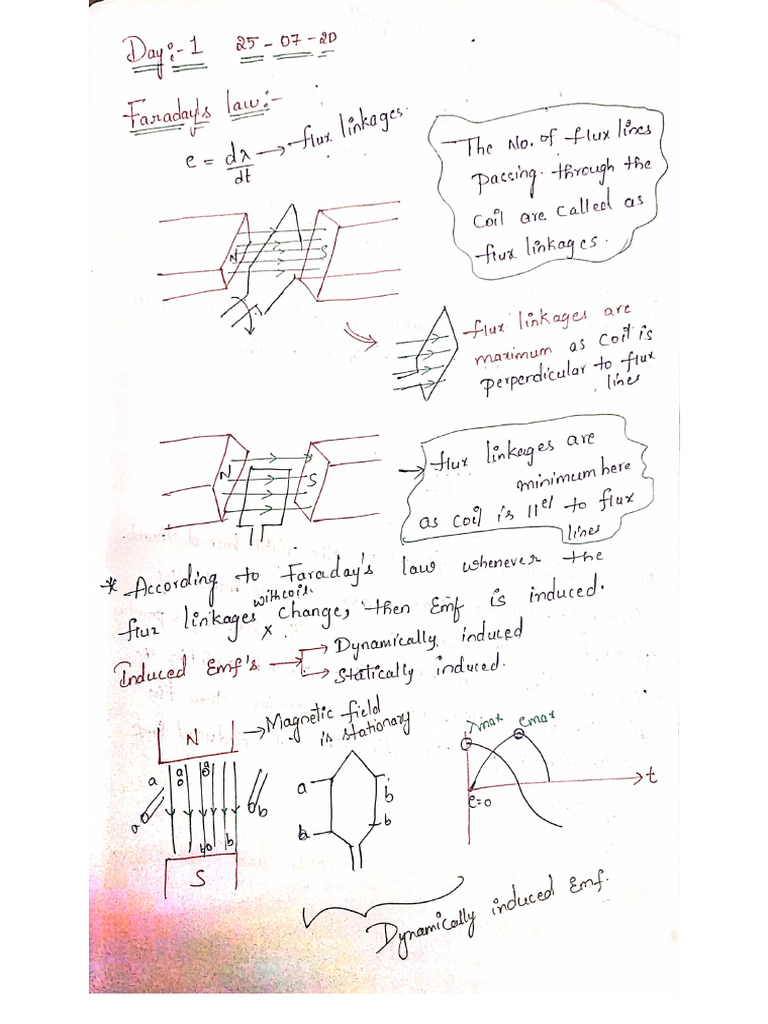 Day:-1 25-07-20
Faraday's law:-
e = dλ/dt → flux linkages.
The No. of flux lines
passing through the
coil are called as
flux linkages.
N S
flux linkages are
maximum as coil is
perpendicular to flux
lines
N S
→ flux linkages are
minimum here
as coil is 11el to flux
lines
* According to Faraday's law whenever the
flux linkages with coil change, then Emf is induced.
Induced Emf's → Dynamically induced
→ Statically induced.
N → Magnetic field
is stationary
a a a b
a b b
S
a b
b b
λmax emax
e=0 t
Dynamically induced Emf.